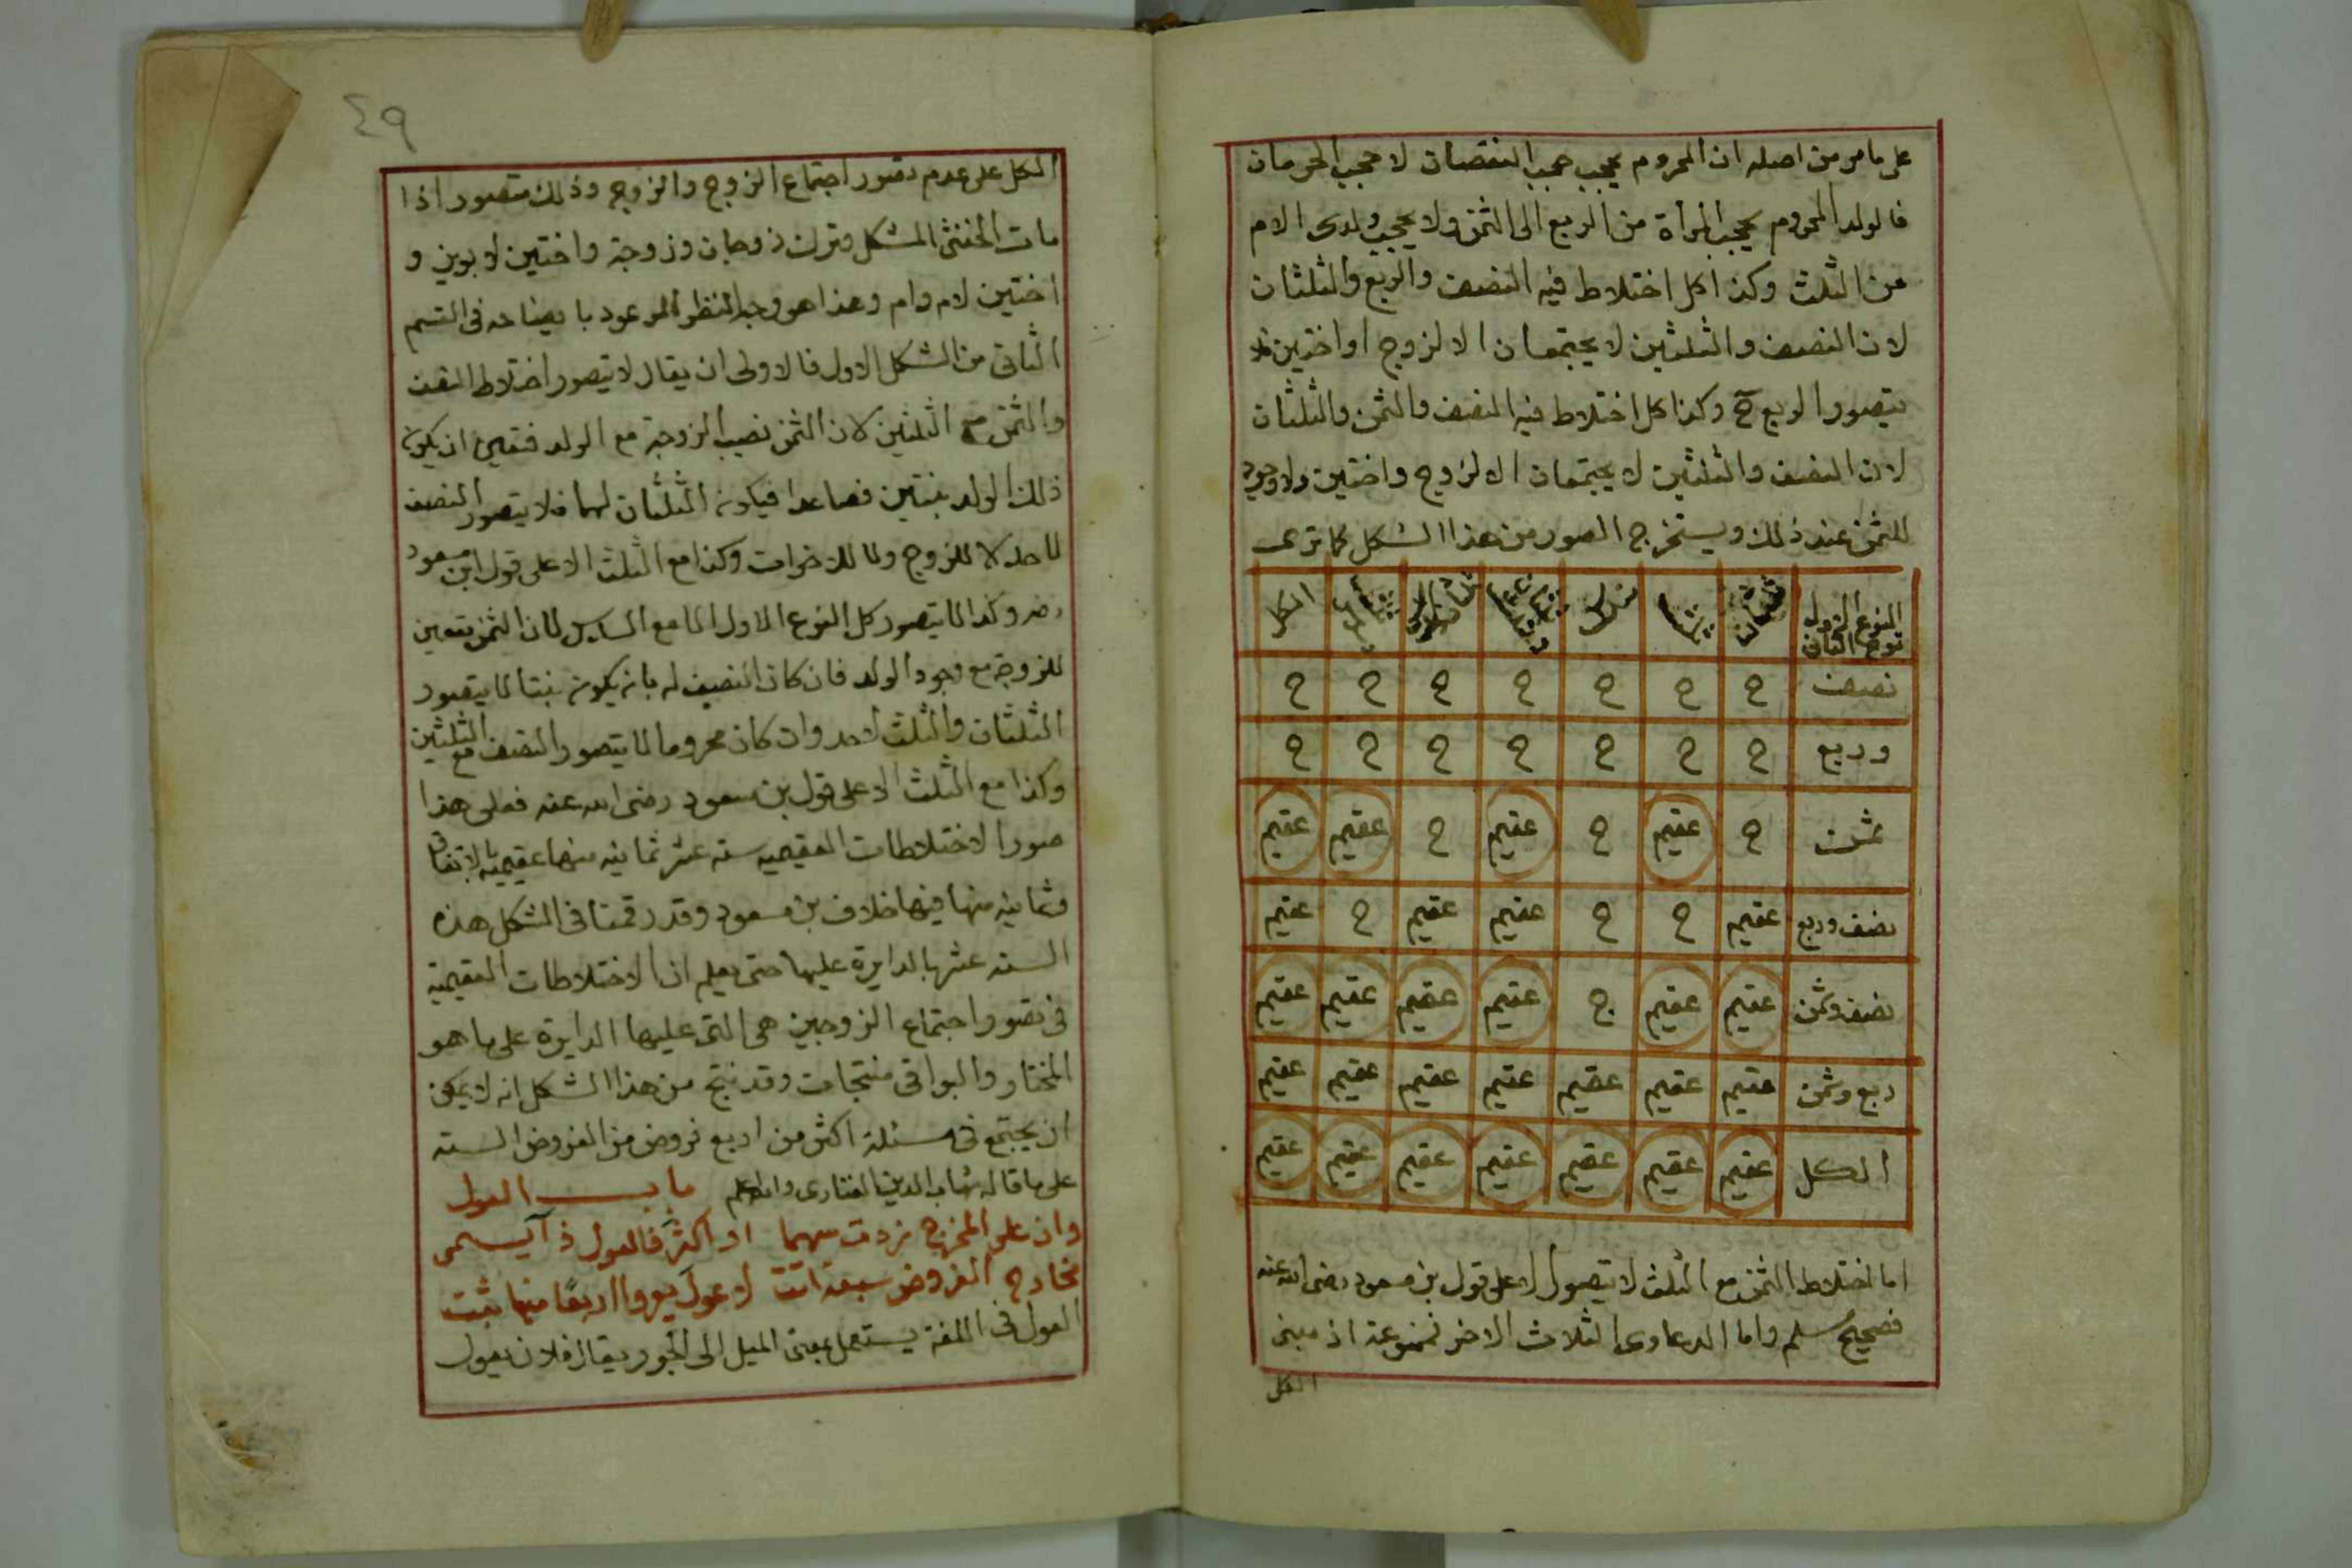 على ما مر من اصله ان المحروم يحجب حجب النقصان لا حجب الحرمان
فالولد المحروم يحجب المرأة من الربع الى الثمن ولا يحجب ولدى الام
من الثلث وكذا كل اختلاط فيه النصف والربع والثلثان
لان النصف والثلثين لا يجتمعان الا لزوج او اختين فلا
يتصور الربع ح وكذا كل اختلاط فيه النصف والثمن والثلثان
لان النصف والثلثين لا يجتمعان الا لزوج واختين ولا وجود
للثمن عند ذلك ويستخرج الصور من هذا الشكل كما ترى
النوع الاول نوع الثانى ثلثان ثلث سدس ثلثان وثلث ثلثان وسدس ثلث وسدس الكل
نصف ح ح ح ح ح ح ح
وربع ح ح ح ح ح ح ح
ثمن ح عقيم ح عقيم ح عقيم عقيم
نصف وربع عقيم ح ح عقيم عقيم ح عقيم
نصف وثمن عقيم عقيم ج عقيم عقيم عقيم عقيم
ربع وثمن عقيم عقيم عقيم عقيم عقيم عقيم عقيم
الكل عقيم عقيم عقيم عقيم عقيم عقيم عقيم
اما اختلاط الثمن مع الثلث لا يتصور الا على قول بن مسعود رضى الله عنه
فصحيح مسلم واما الدعاوى الثلاث الاخر فممنوعة اذ مبنى
الكل
٤٩
الكل على عدم تصور اجتماع الزوج والزوج وذلك متصور اذا
مات الخنثى المشكل وترك زوجان وزوجة واختين لابوين و
اختين لام وام وهذا هو وجه النظر الموعود بايضاحه فى القسم
الثانى من الشكل الاول فالاولى ان يقال لا يتصور اختلاط النصف
والثمن مع الثلثين لان الثمن نصيب الزوجة مع الولد فتعين ان يكون
ذلك الولد بنتين فصاعدا فيكون الثلثان لهما فلا يتصور النصف
لاحد لا للزوج ولا للاخوات وكذا مع الثلث الا على قول ابن مسعود
رضه وكذا لا يتصور كل النوع الاول الا مع السدس لان الثمن يتعين
للزوجة مع وجود الولد فان كان النصف له بان يكون بنتا لا يتصور
الثلثان والثلث لاحد وان كان محروما لا يتصور النصف مع الثلثين
وكذا مع الثلث الا على قول بن مسعود رضى الله عنه فعلى هذا
صور الاختلاطات العقيمية ستة عشر ثمانية منها عقيمية بالاتفاق
وثمانية منها فيها خلاف بن مسعود وقد رقمنا فى الشكل هذه
الستة عشر بالدايرة عليها حتى يعلم ان الاختلاطات العقيمية
فى تصور اجتماع الزوجين هى التى عليها الدايرة على ما هو
المختار والبواقى منتجات وقد نتج من هذا الشكل انه لا يمكن
ان يجتمع فى مسئلة اكثر من اربع فروض من الفروض الستة
على ما قاله شهاب الدين الفنارى والله اعلم باب العول
وان على المخرج زدت سهما او اكثر فالعول ذا يسمى
مخارج الفروض سبعة اتت لا عول يعرو اربعا منها ثبت
العول فى اللغة يستعمل بمعنى الميل الى الجور يقال فلان يعول